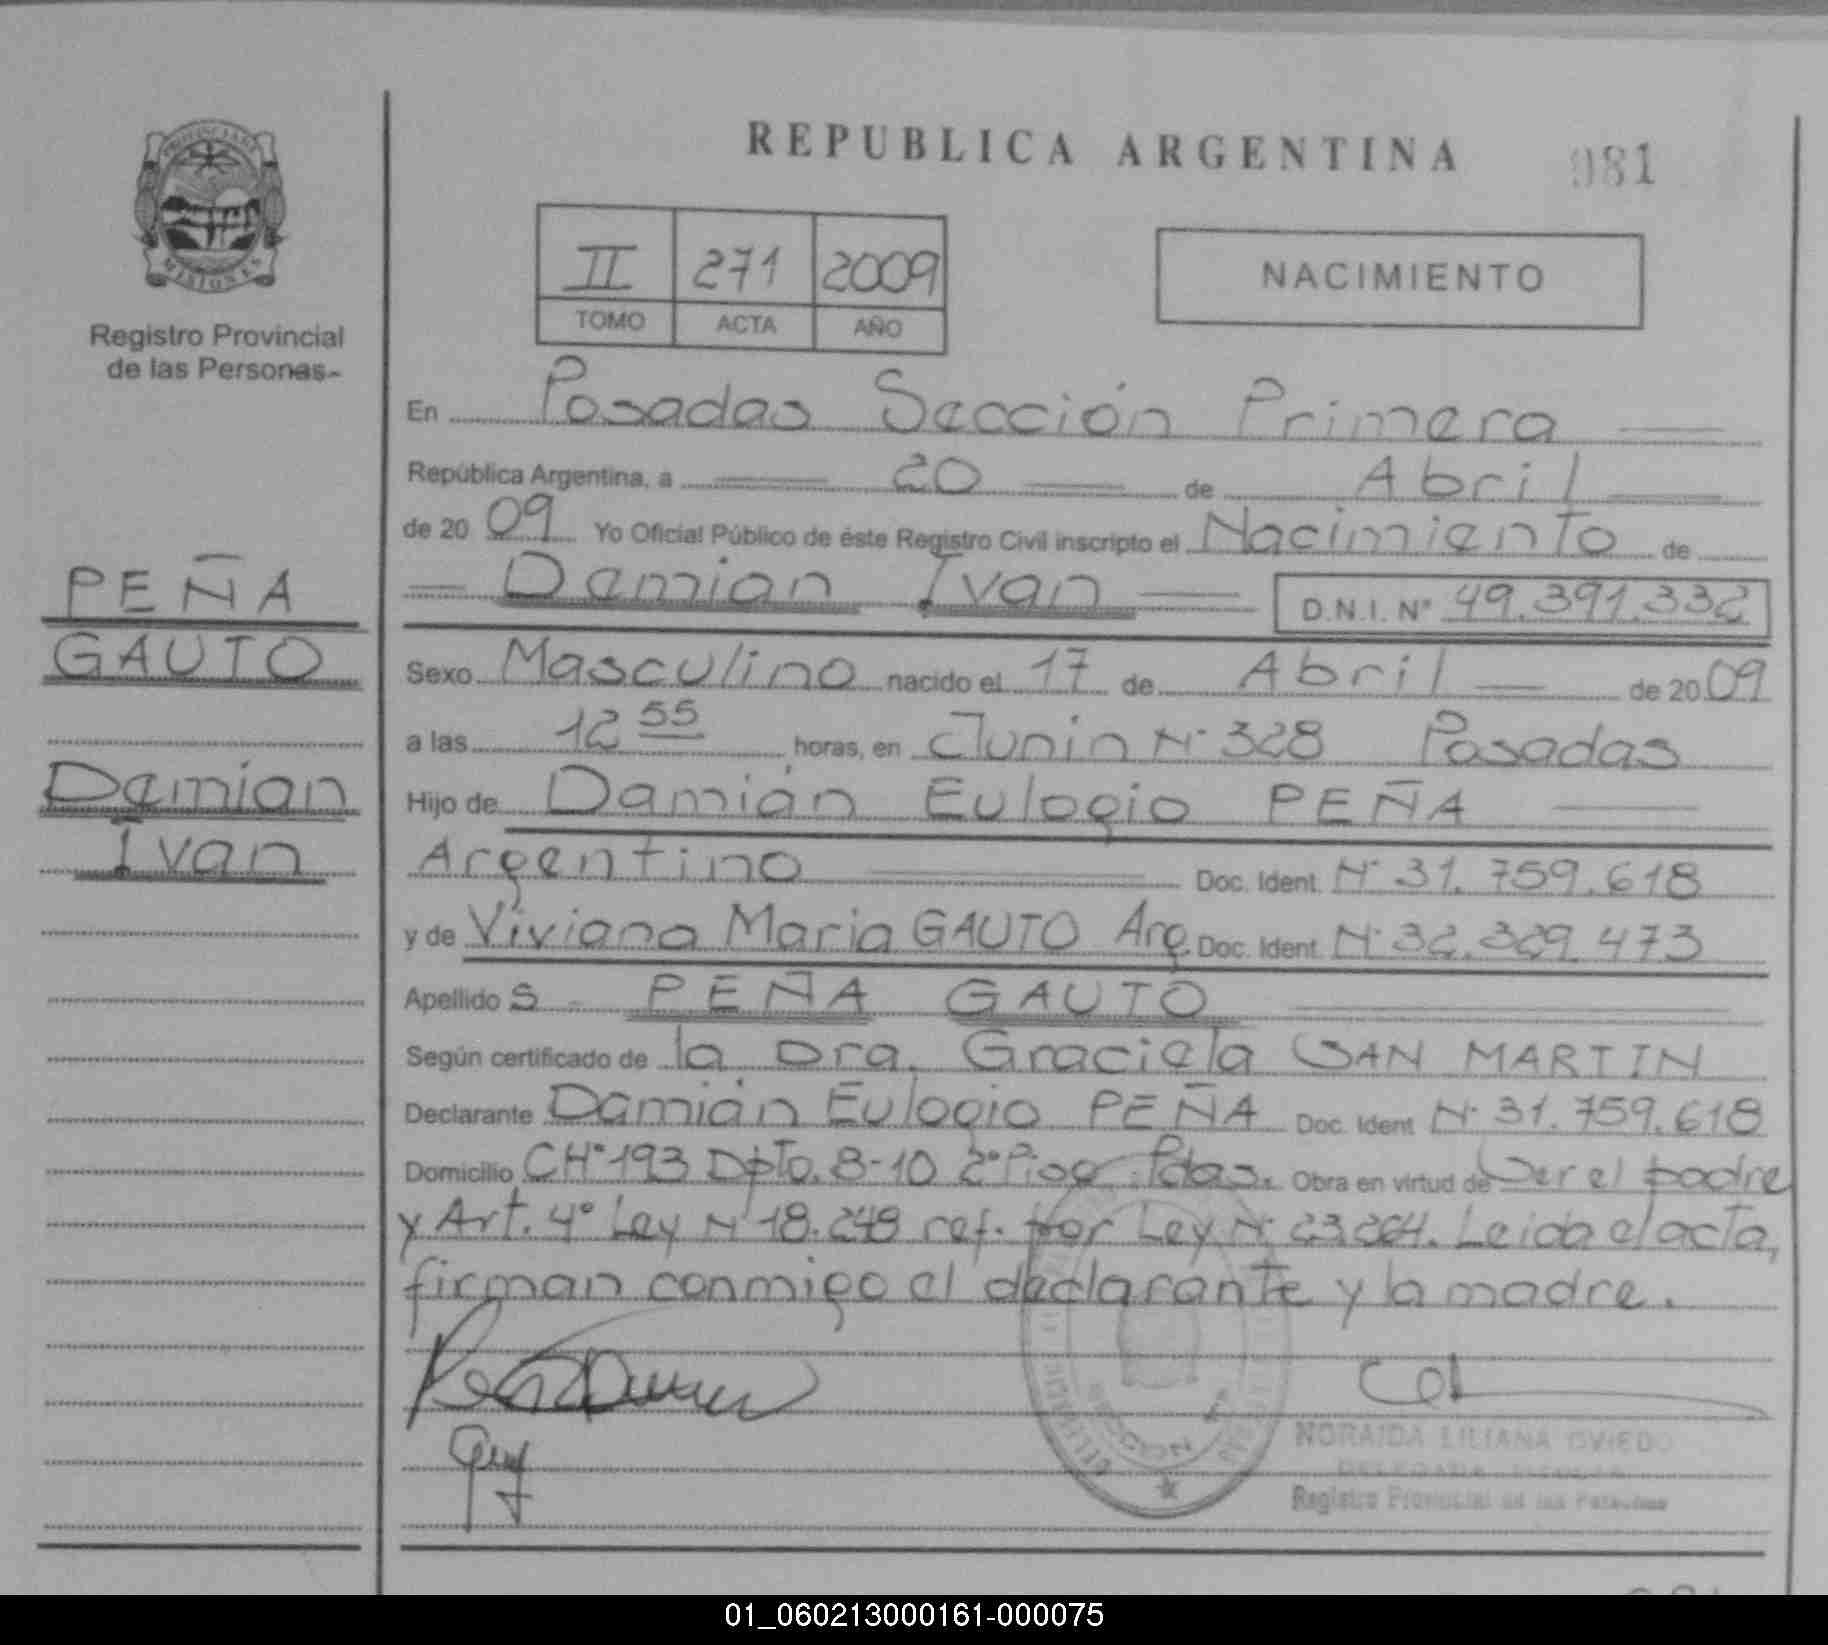 REPUBLICA ARGENTINA 981
PROVINCIA DE
MISIONES
Registro Provincial
de las Personas
PEÑA
GAUTO
Damian
Ivan
II 271 2009
TOMO ACTA AÑO
NACIMIENTO
En Posadas Sección Primera
República Argentina, a 20 de Abril
de 2009 Yo Oficial Público de éste Registro Civil inscripto el Nacimiento de
Damian Ivan D.N.I. N° 49.391.332
Sexo Masculino nacido el 17 de Abril de 2009
a las 12 55 horas, en Junin N° 328 Posadas
Hijo de Damián Eulogio PEÑA
Argentino Doc. Ident. N° 31.759.618
y de Viviana Maria GAUTO Arg. Doc. Ident. N° 32.329.473
Apellido s PEÑA GAUTO
Según certificado de la Dra. Graciela SAN MARTIN
Declarante Damián Eulogio PEÑA Doc. Ident N° 31.759.618
Domicilio CH° 193 Dpto. 8-10 2° Piso Pdas. Obra en virtud de Ser el padre
y Art. 4° Ley N° 18.248 ref. por Ley N° 23.264. Leida el acta,
firman conmigo el declarante y la madre.
NORAIDA LILIANA OVIEDO
DELEGADA
Registro Provincial de las Personas
01_060213000161-000075